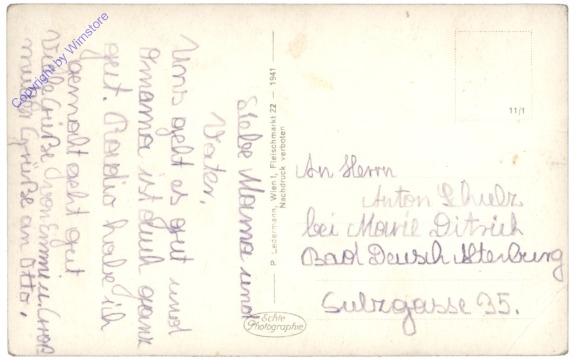 Liebe Mama und
Vater,
Uns geht es gut und
Omama ist auch ganz
gut. Radio habe ich
gemalt geht gut
Viele Grüße von Emmi u. Groß
mutter Grüße an Otto.
P. Ledermann, Wien I, Fleischmarkt 22 — 1941
Nachdruck verboten
Echte
Photographie
11/1
An Herrn
Anton Schulz
bei Marie Ditrich
Bad Deusch Altenburg
Sulzgasse 35.
Copyright by Wimstore